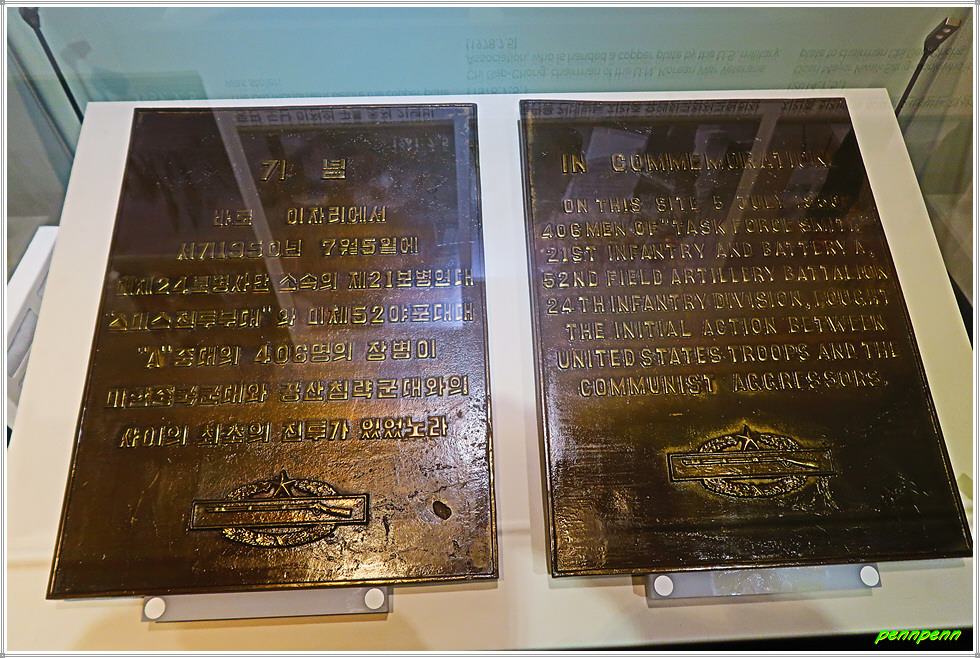 기 념
바로 이자리에서
서기1950년 7월5일에
미제24보병사단 소속의 제21보병연대
"스미스전투부대"와 미제52야포대대
"A"중대의 406명의 장병이
미합중국군대와 공산침략군대와의
사이의 최초의 전투가 있었노라
IN COMMEMORATION
ON THIS SITE 5 JULY 1950
406 MEN OF "TASK FORCE SMITH",
21ST INFANTRY AND BATTERY A,
52ND FIELD ARTILLERY BATTALION
24TH INFANTRY DIVISION, FOUGHT
THE INITIAL ACTION BETWEEN
UNITED STATES TROOPS AND THE
COMMUNIST AGGRESSORS.
pennpenn